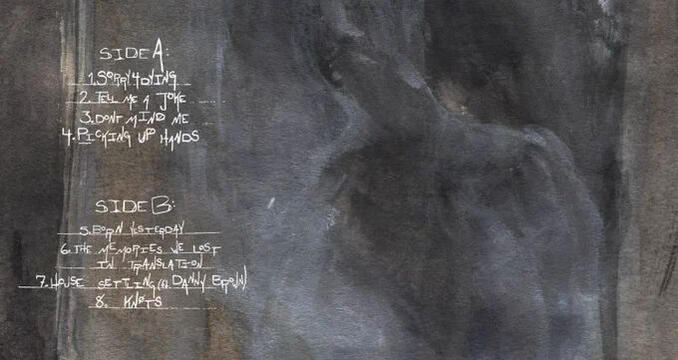 SIDE A:
1. SORRY4DYING
2. TELL ME A JOKE
3. DONT MIND ME
4. PICKING UP HANDS
SIDE B:
5. BORN YESTERDAY
6. THE MEMORIES WE LOST
IN TRANSLATION
7. HOUSE SETTLING (ft. DANNY BROWN)
8. KNOTS